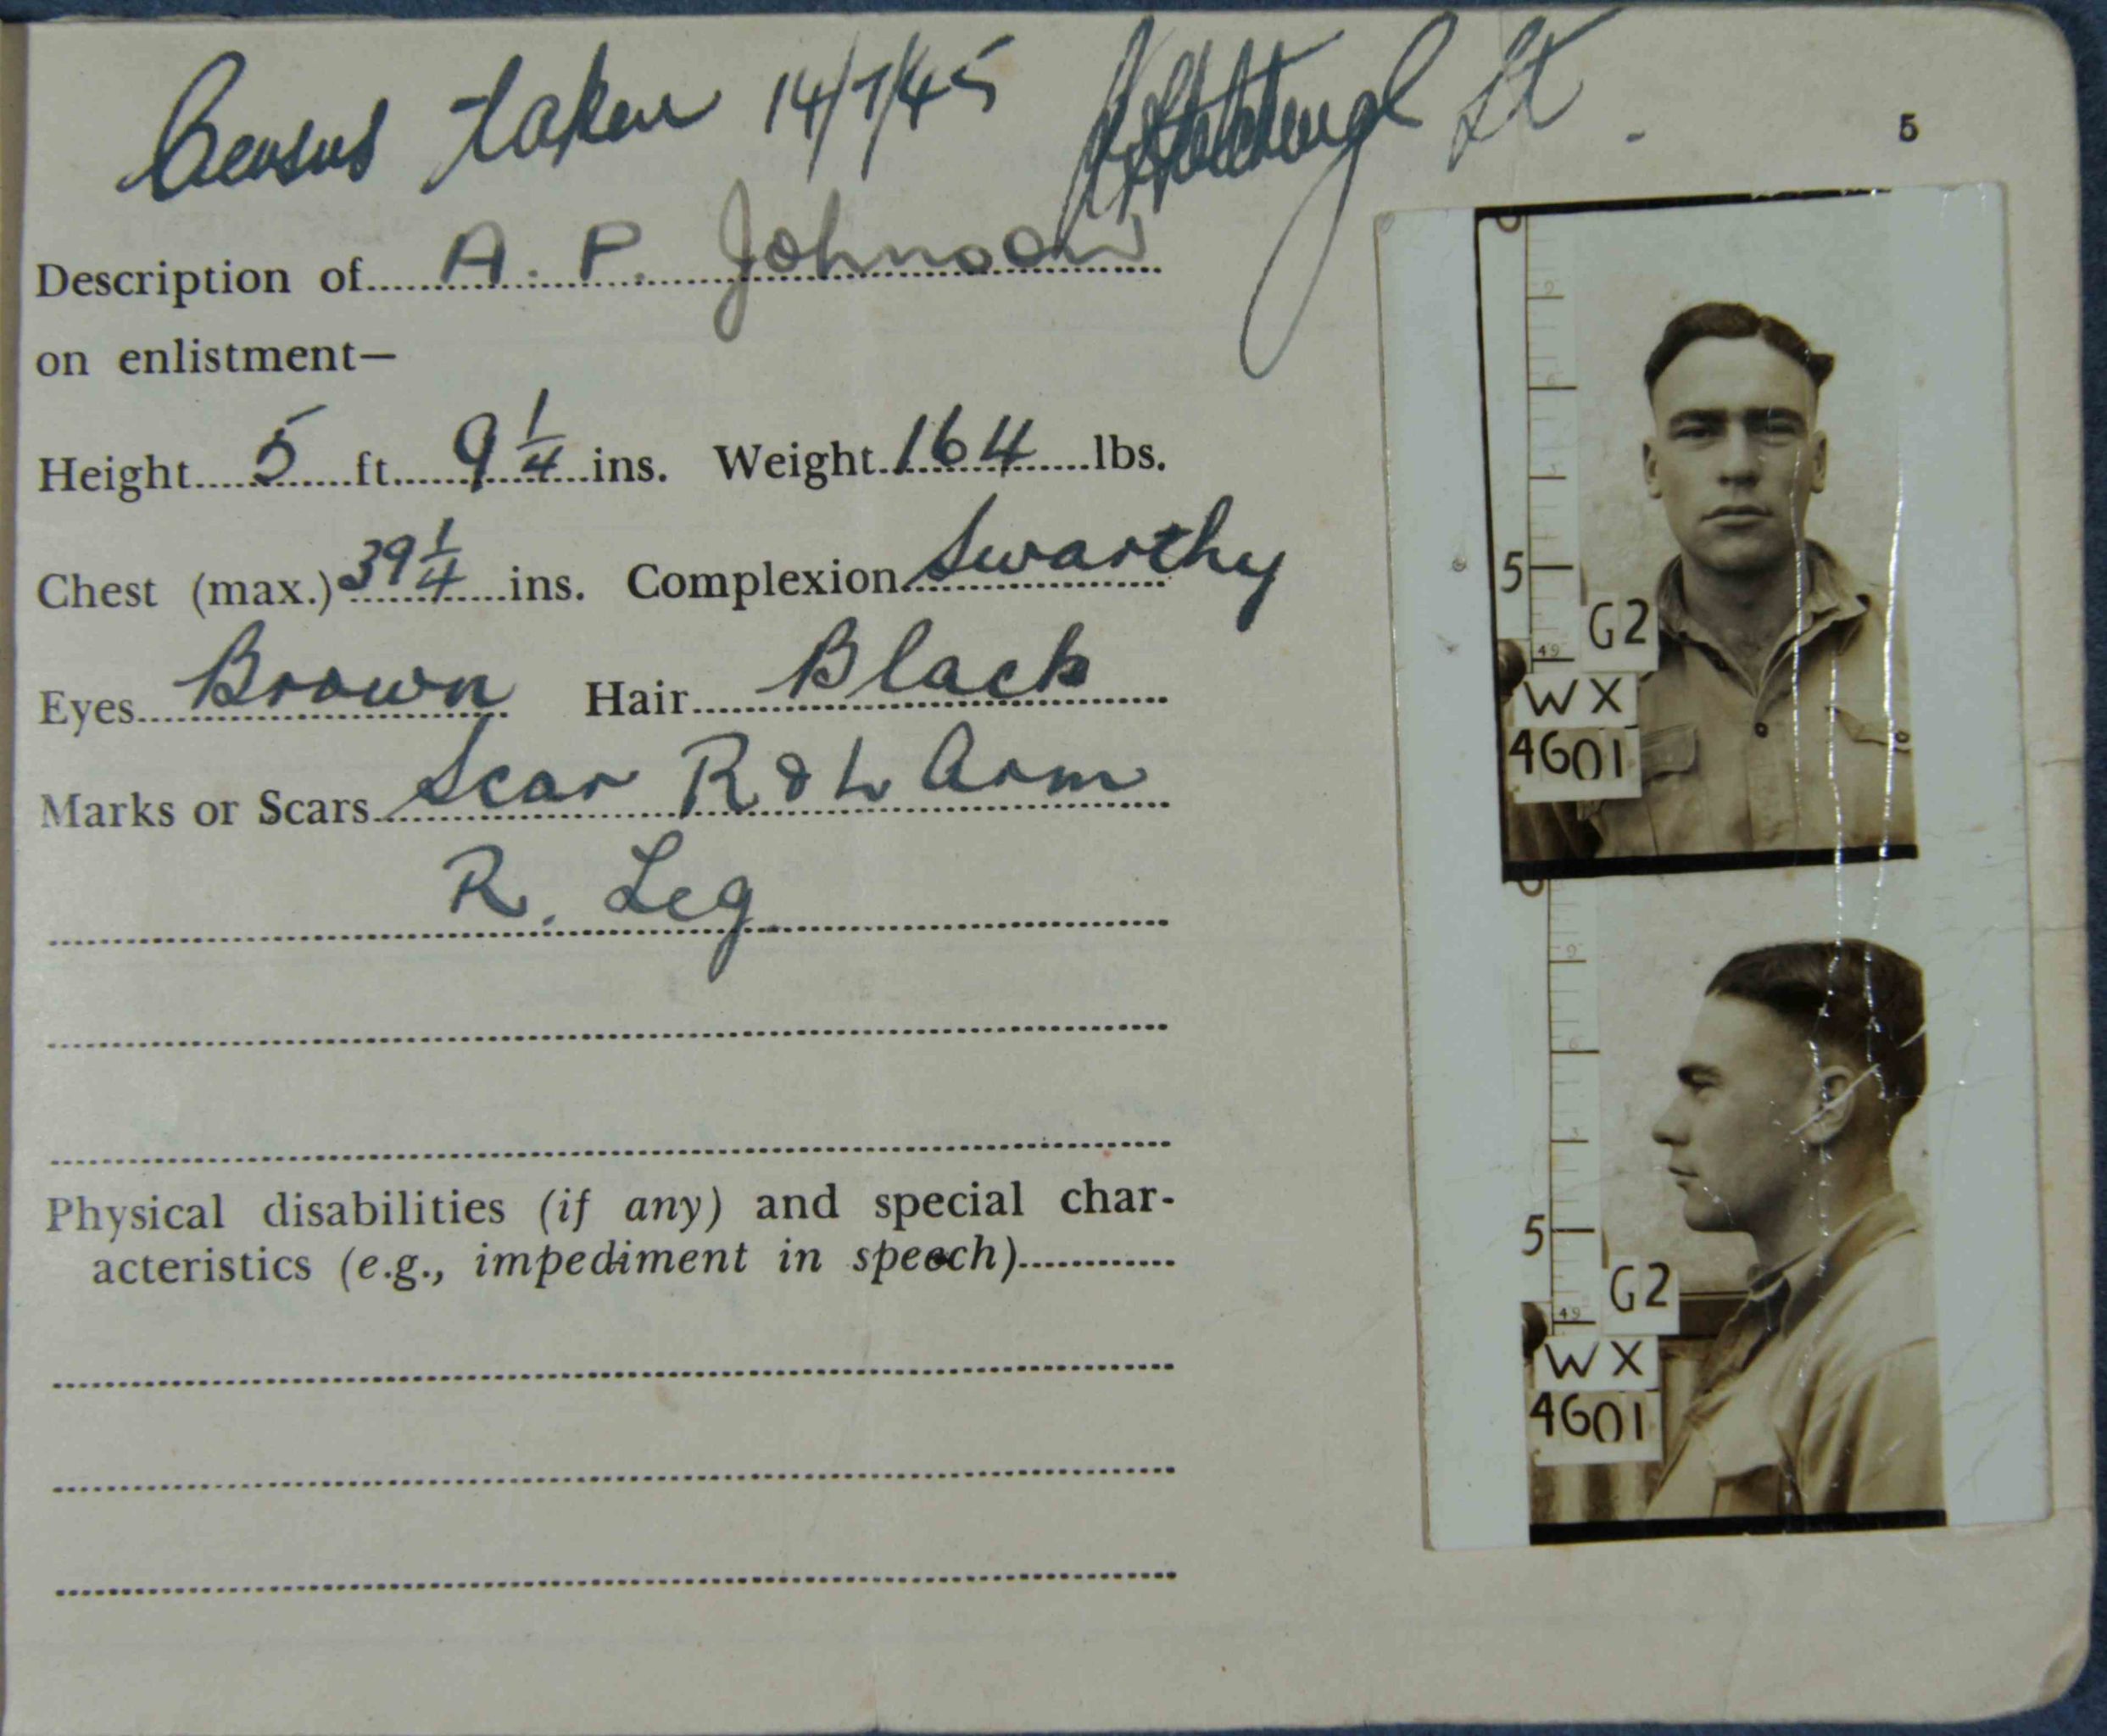 Census taken 14/7/45 Lt.
5
Description of A. P. Johnson
on enlistment—
Height 5 ft. 9 1/4 ins. Weight 164 lbs.
Chest (max.) 39 1/4 ins. Complexion Swarthy
Eyes Brown Hair Black
Marks or Scars Scar R & L Arm
R. Leg
Physical disabilities (if any) and special char-
acteristics (e.g., impediment in speech)
9
6
3
5
G2
49
WX
4601
9
6
3
5
G2
49
WX
4601